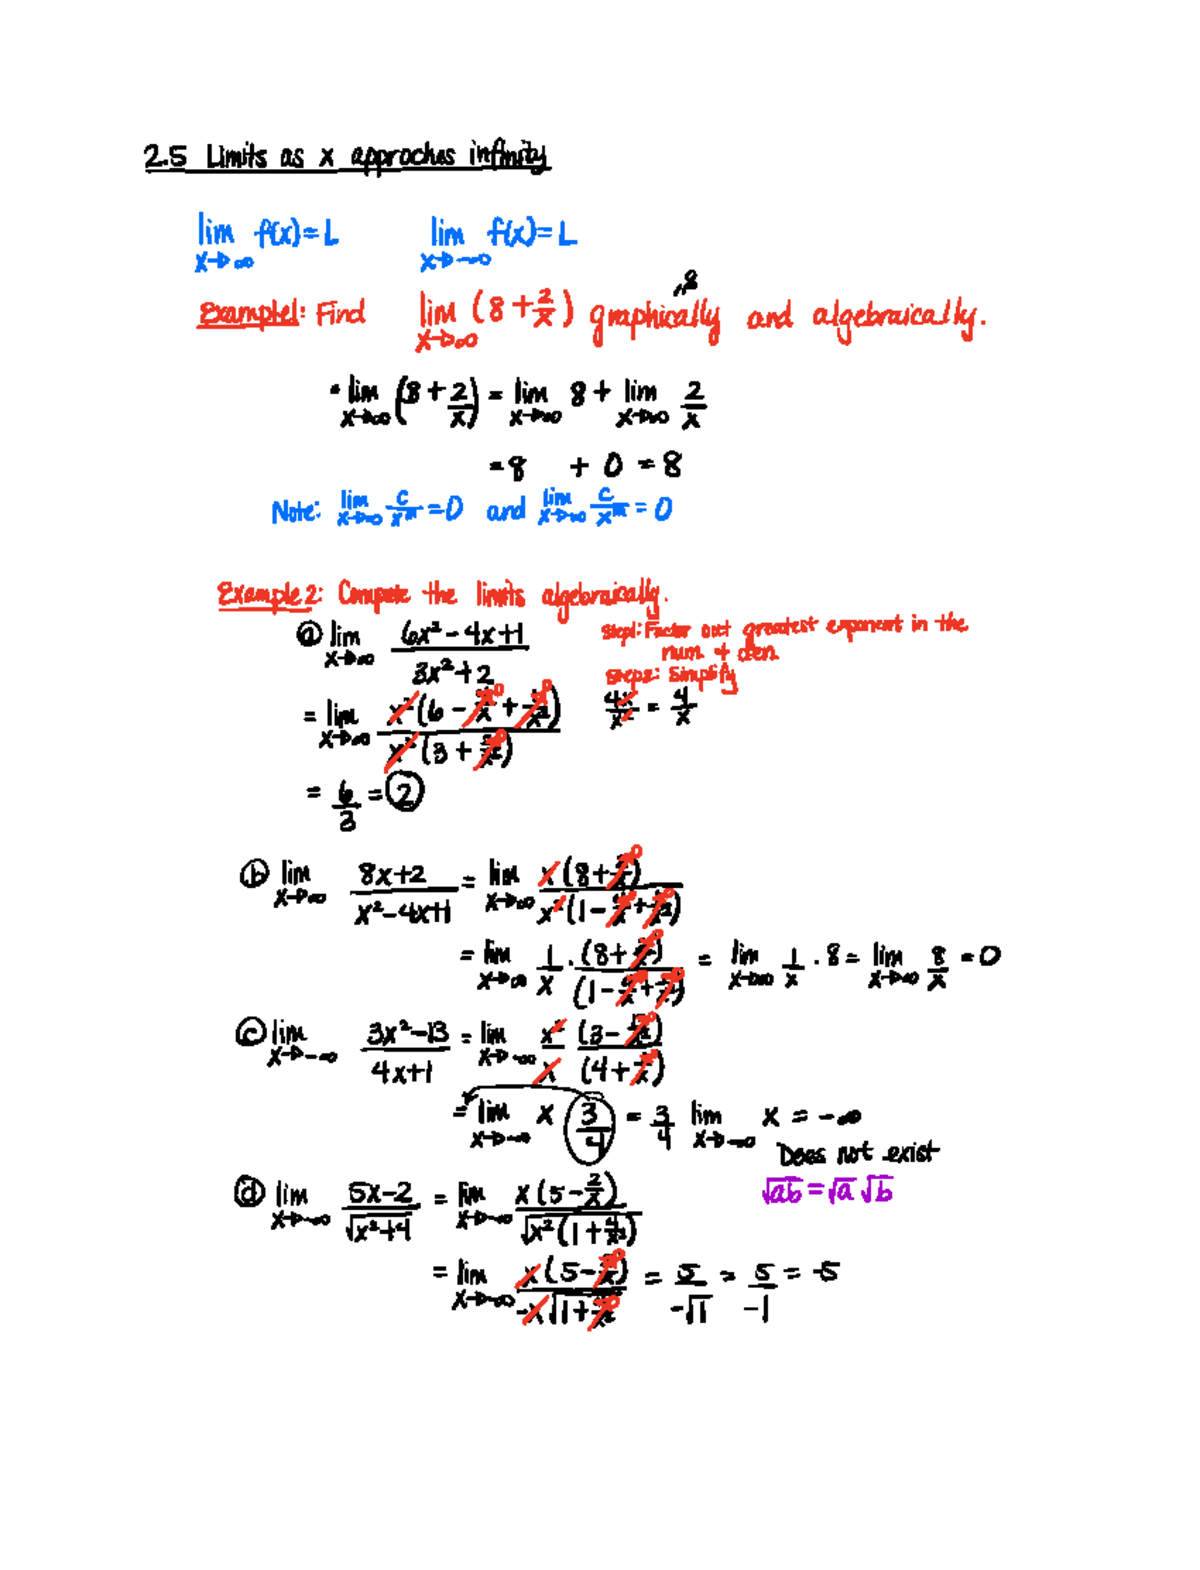 2.5 Limits as x approches infinity
lim x→∞ f(x)=L    lim x→-∞ f(x)=L
,8
Example1: Find lim x→∞ (8 + 2/x) graphically and algebraically.
• lim x→∞ (8 + 2/x) = lim x→∞ 8 + lim x→∞ 2/x
= 8 + 0 = 8
Note: lim x→∞ c/x^m = 0 and lim x→∞ c/x^m = 0
Example 2: Compute the limits algebraically.
ⓐ lim x→∞ (6x² - 4x + 1)/(3x² + 2)
Step1: Factor out greatest exponent in the
num. + den.
Step2: Simplify
= lim x→∞ x²(6 - 4/x + 1/x²)/x²(3 + 2/x²)
4x/x² = 4/x
= 6/3 = 2
ⓑ lim x→∞ (8x+2)/(x²-4x+1) = lim x→∞ x(8 + 2/x)/x²(1 - 4/x + 1/x²)
= lim x→∞ 1/x · (8 + 2/x)/(1 - 4/x + 1/x²) = lim x→∞ 1/x · 8 = lim x→∞ 8/x = 0
ⓒ lim x→-∞ (3x²-13)/(4x+1) = lim x→-∞ x²/x (3 - 13/x²)/(4 + 1/x)
= lim x→-∞ x 3/4 = 3/4 lim x→-∞ x = -∞
Does not exist
√ab = √a √b
ⓓ lim x→-∞ (5x-2)/√(x²+4) = lim x→-∞ x(5 - 2/x)/√(x²(1 + 4/x²))
= lim x→-∞ x(5 - 2/x)/-x√(1 + 4/x²) = 5/-√1 = 5/-1 = -5